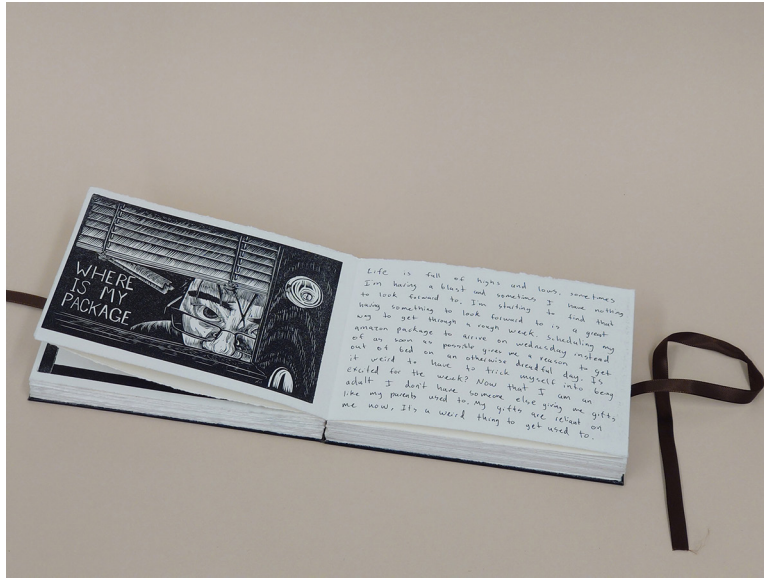 WHERE
IS MY
PACKAGE
Life is full of highs and lows. sometimes
I'm having a blast and sometimes I have nothing
to look forward to. I'm starting to find that
having something to look forward to is a great
way to get through a rough week. Scheduling my
amazon package to arrive on wednesday instead
of as soon as possible gives me a reason to get
out of bed on an otherwise dreadful day. Is
it weird to have to trick myself into being
excited for the week? Now that I am an
adult I don't have someone else giving me gifts
like my parents used to. My gifts are reliant on
me now, It's a weird thing to get used to.